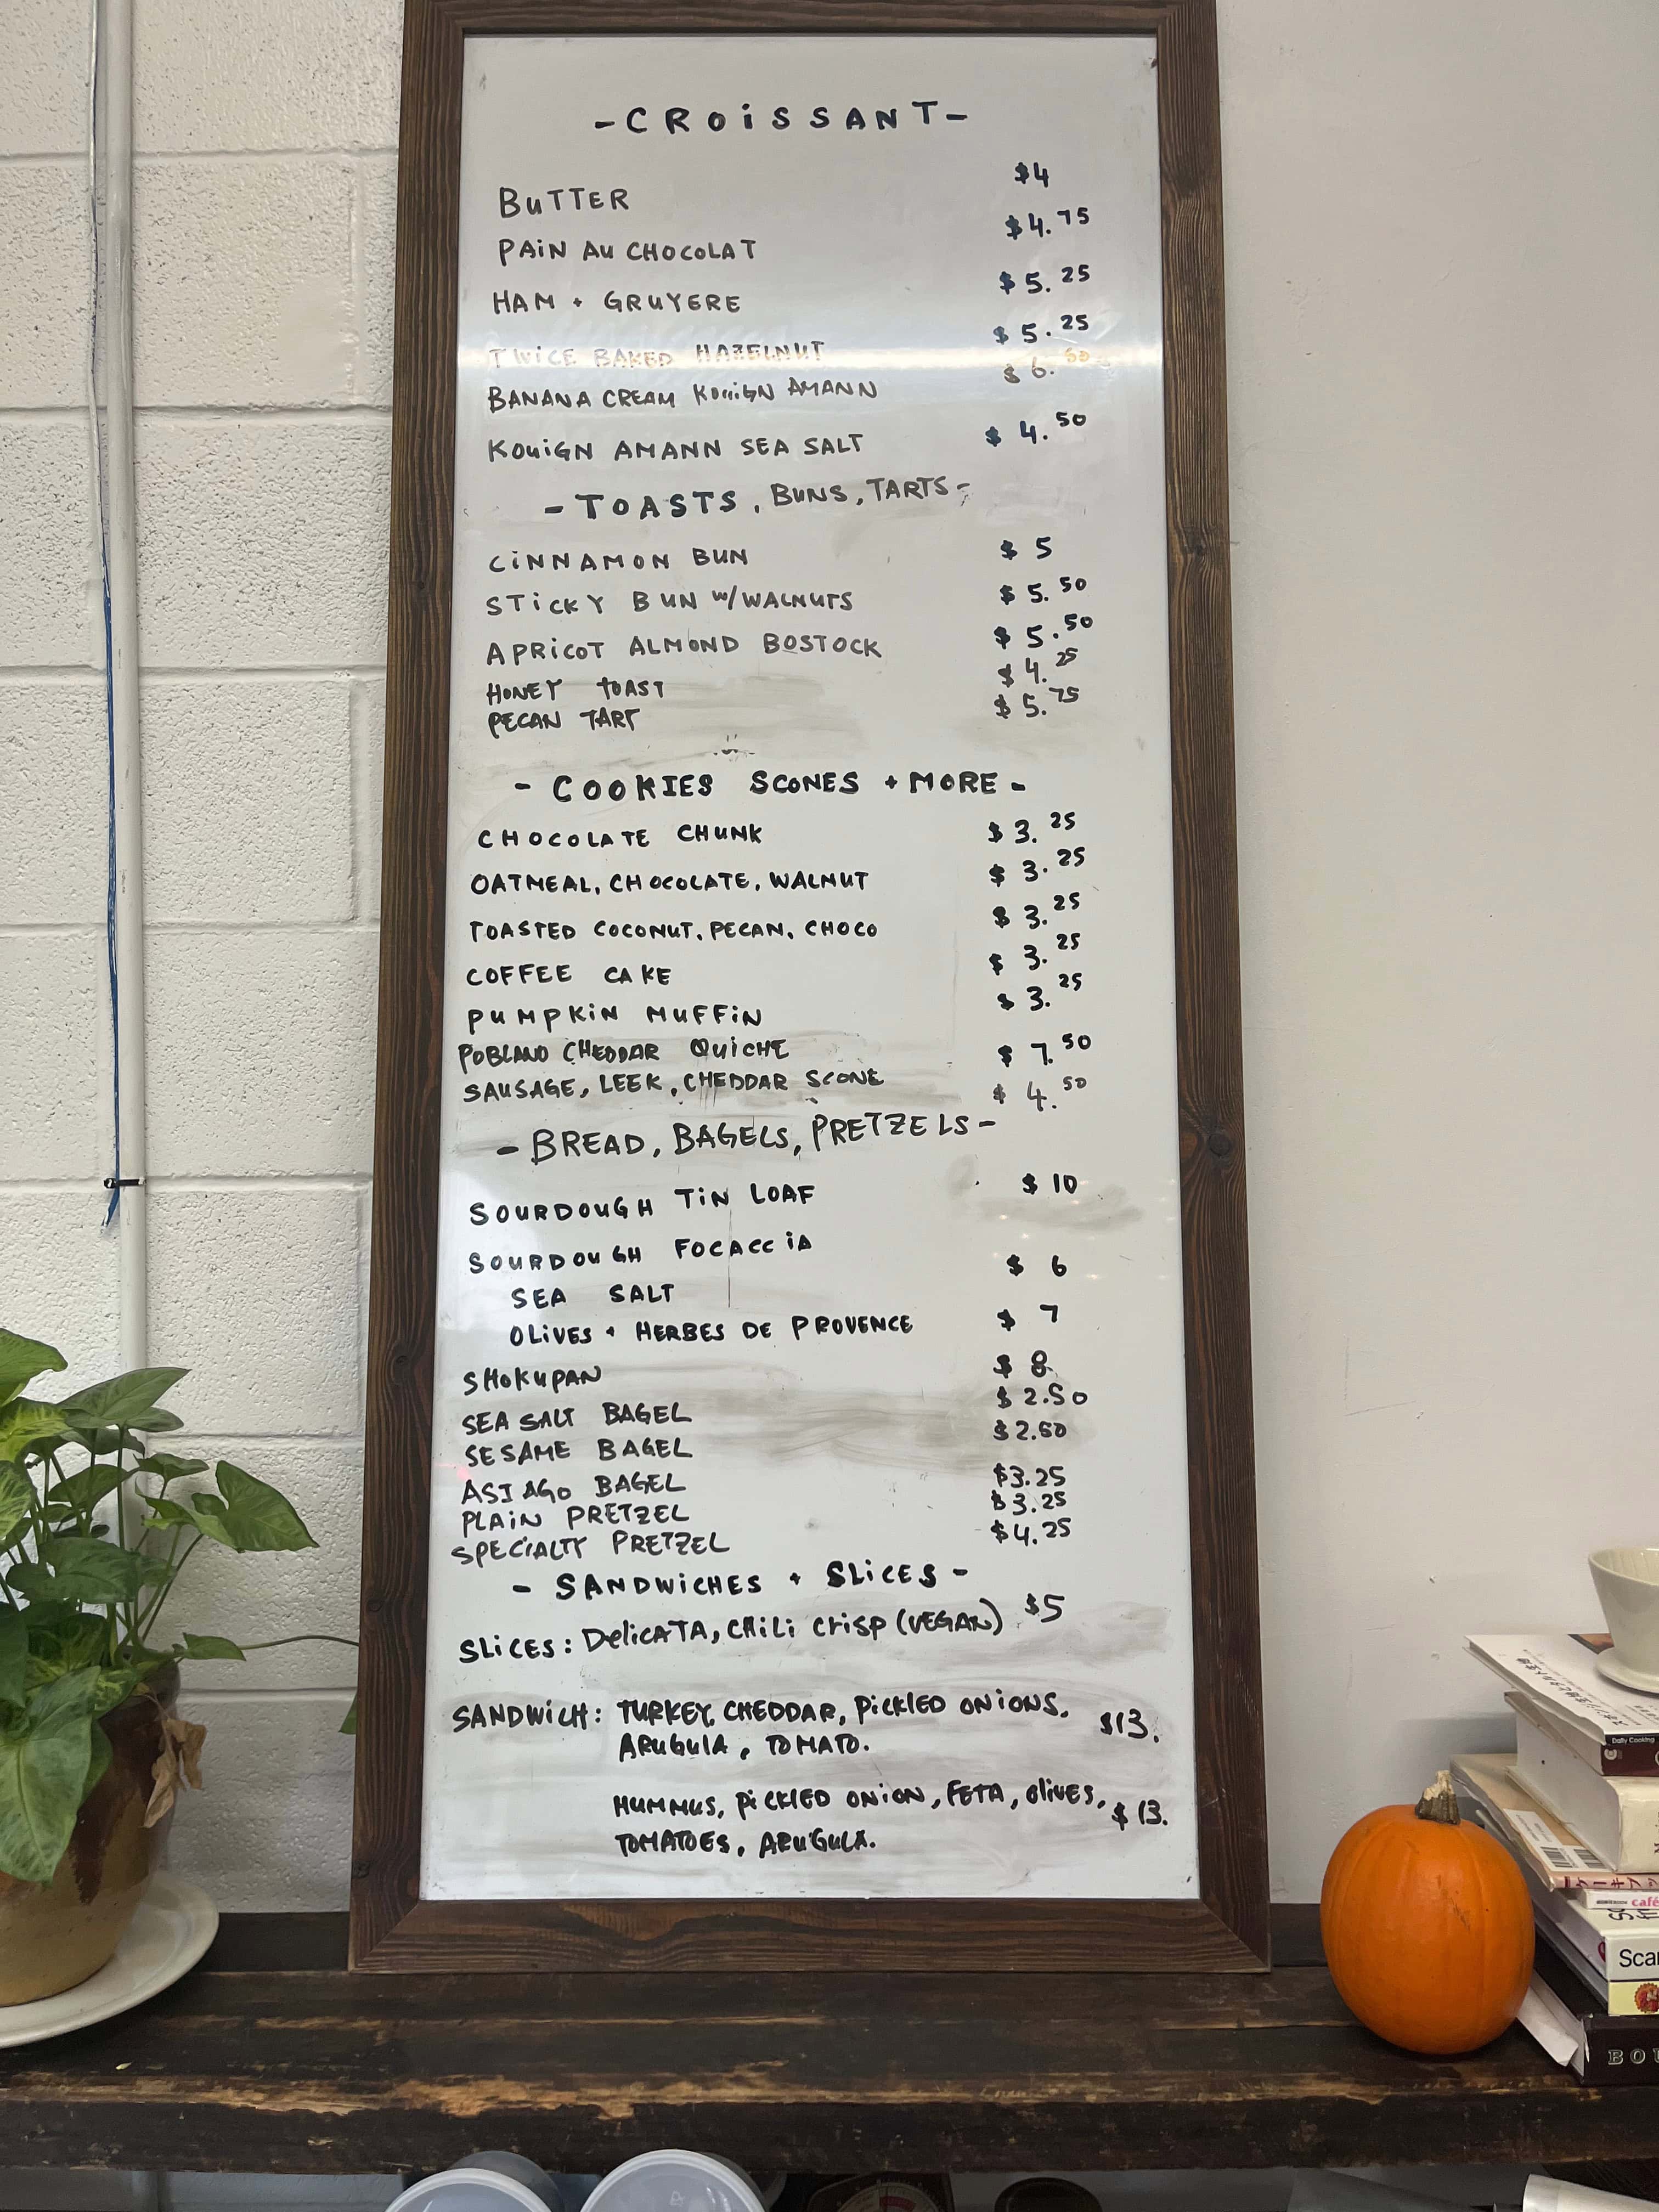 -CROiSSANT-
BuTTER $4
PAiN Au CHOCOLAT $4.75
HAM + GRUYERE $5.25
TWiCE BAKED HAZELNUT $5.25
BANANA CREAM KOUiGN AMANN $6.50
KOUiGN AMANN SEA SALT $4.50
-TOASTS, BUNS, TARTS-
CiNNAMON BUN $5
STiCKY BUN W/WALNUTS $5.50
APRiCOT ALMOND BOSTOCK $5.50
HONEY TOAST $4.25
PECAN TART $5.75
- COOKIES SCONES + MORE -
CHOCOLATE CHUNK $3.25
OATMEAL, CHOCOLATE, WALNUT $3.25
TOASTED COCONUT, PECAN, CHOCO $3.25
COFFEE CAKE $3.25
PUMPKiN MUFFiN $3.25
POBLANO CHEDDAR QUiCHE $7.50
SAUSAGE, LEEK, CHEDDAR SCONE $4.50
- BREAD, BAGELS, PRETZELS -
SOURDOUGH TiN LOAF $10
SOURDOUGH FOCACCiA
SEA SALT $6
OLiVES + HERBES DE PROVENCE $7
SHOKUPAN $8
SEA SALT BAGEL $2.50
SESAME BAGEL $2.50
ASIAGO BAGEL $3.25
PLAiN PRETZEL $3.25
SPECiALTY PRETZEL $4.25
- SANDWiCHES + SLiCES -
SLiCES: DeliCATA, CHiLi CriSP (VEGAN) $5
SANDWiCH: TURKEY, CHEDDAR, PiCKlED ONiONS, $13.
ARUGUlA, TOMATO.
HUMMUS, PiCKlED ONiON, FETA, OliVES, $13.
TOMATOES, ARUGULA.
Daily Cooking
café
Scan
BOU